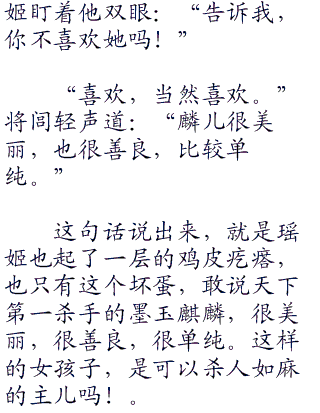 姬盯着他双眼：“告诉我，
你不喜欢她吗！”
“喜欢，当然喜欢。”
将闾轻声道：“麟儿很美
丽，也很善良，比较单
纯。”
这句话说出来，就是瑶
姬也起了一层的鸡皮疙瘩，
也只有这个坏蛋，敢说天下
第一杀手的墨玉麒麟，很美
丽，很善良，很单纯。这样
的女孩子，是可以杀人如麻
的主儿吗！。